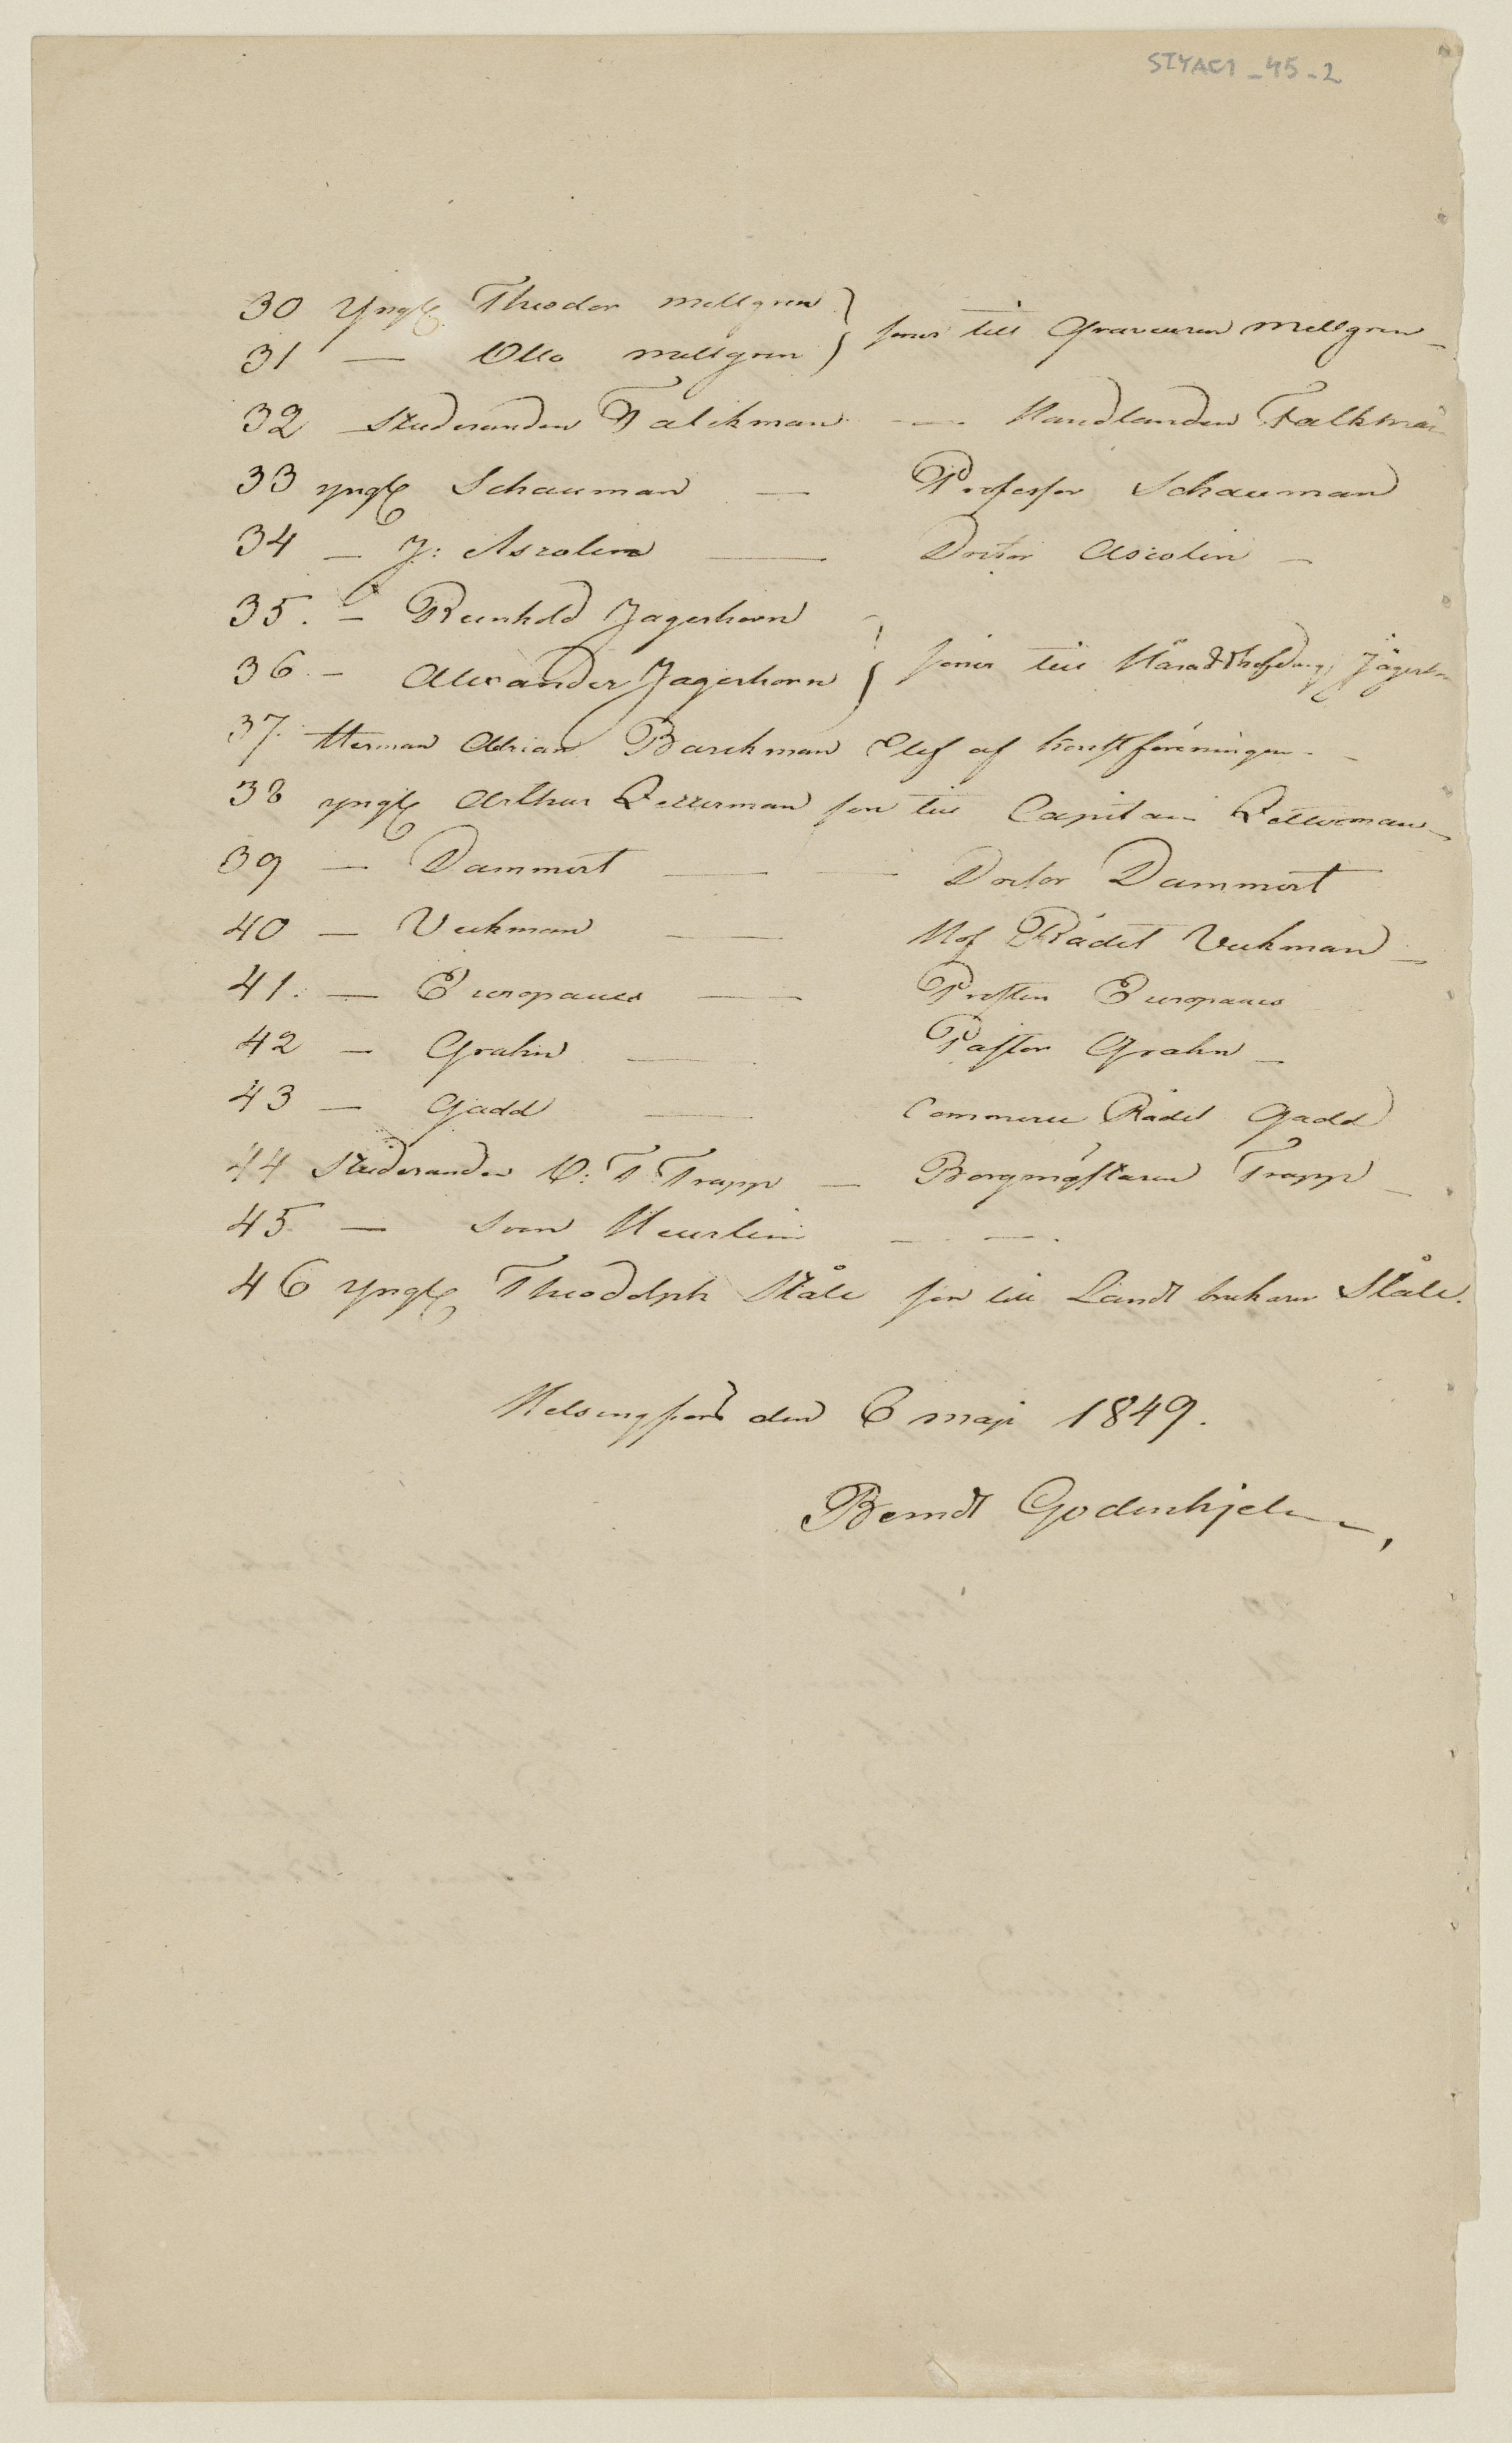 STYAC1 - 45 - 2
30 Yngl. Theodor Mellgren } söner till Graveuren Mellgren –
31 — Otto Mellgren }
32 Studeranden Falckman — Handlanden Falkman
33 yngl. Schauman — Professor Schauman
34 — J: Asrolin — Doctor Asiolin –
35. – Reinhold Jagerhorn }
36. – Alexander Jagerhorn } söner till Häradshöfding Jägerh
37. Herman Adrian Barckman Elef af Konstföreningen –
38 yngl. Arthur Zetterman son till Capitain Zetterman –
39 — Dammert — — Doctor Dammert
40 — Veckman — Hof Rådet Veckman –
41. — Europaeus — Prosten Europaeus
42 — Grahn — Pastor Grahn –
43 — Gadd — Commerce Rådet Gadd
44 Studeranden O: T. Trapp — Borgmästaren Trapp –
45 — Sven Heurlin — —
46 Yngl. Theodolph Ståle son till Landtbrukaren Ståle.
Helsingfors den 6 maji 1849.
Berndt Godenhjelm,